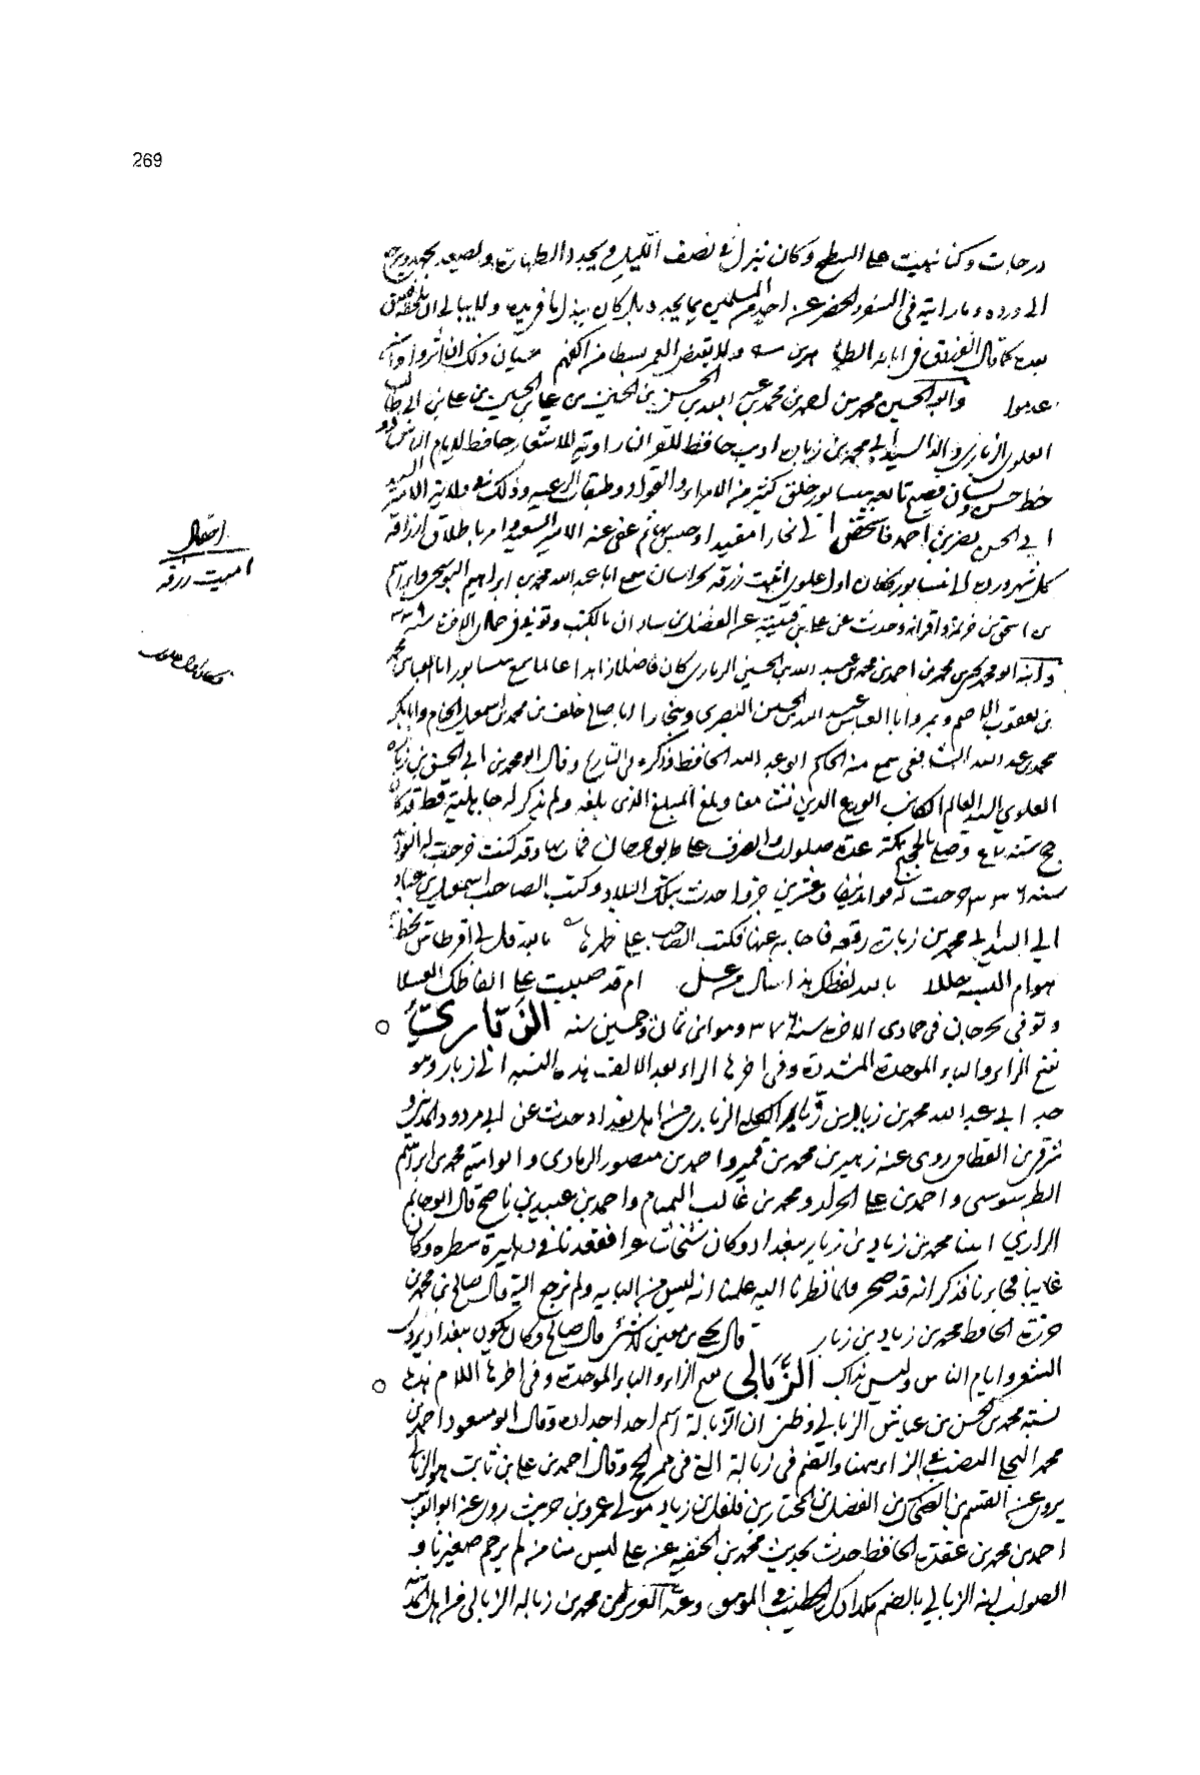 269
درجات وكنا نبيت على السطح وكان ينزل في نصف الليل ويجدد الطهارة ويصعد
الى ورده وما رايته في السفر والحضر عنه احد من المسلمين بما يجد وكان يبذل ما في يده ولا يبالي ان
كما قال الفرزدق في ابائه سيان ذلك ان اثروا وان
عدموا وابو الحسين محمد بن احمد بن محمد بن عبد الله بن الحسن بن الحسين بن علي بن الحسين بن علي بن ابي طالب
العلوي الزباري والد السيد ابي محمد بن زبارة اديب حافظ للقران راوية للاشعار حافظ لايام الناس ذو
خط حسن ولسان فصيح تابعه بنيسابور خلق كثير من الامراء والقواد وطبقات الرعية وذلك في ولاية الامير السعيد
ابي الحسن نصر بن احمد فاشخص الى بخارا مقيدا وحبس بها ثم عفى عنه الامير السعيد وامر باطلاق ارزاقه
كل شهر ورده الى نيسابور فكان اول علوي اثبت رزقه بخراسان سمع ابا عبد الله محمد بن ابراهيم البوسنجي وابراهيم
بن اسحق بن خزيمة واقرانه وحدث عن علي بن قتيبة عن الفضل بن شاذان بالكتب وتوفي في جمادى الاخرة سنة ٣٣٩
وابنه ابو محمد يحيى بن محمد بن احمد بن محمد بن عبد الله بن الحسين الزباري كان فاضلا زاهدا عالما سمع بنيسابور ابا العباس محمد
بن يعقوب الاصم وبمرو ابا العباس عبد الله بن الحسين النضري وببخارا ابا صالح خلف بن محمد بن اسمعيل الخيام وابا بكر
محمد بن عبد الله الشافعي سمع منه الحاكم ابو عبد الله الحافظ وذكره في التاريخ وقال ابو محمد بن ابي الحسين بن زبارة
العلوي السيد العالم الكاتب الورع الدين نشا معنا وبلغ المبلغ الذي بلغه ولم يذكر له جاهلية قط
حج سنة وصلى بالحجيج بمكة عدة صلوات وانصرف على طريق جرجان فمات بها وقد كنت خرجت له الفوائد
سنة ٣٣٦ خرجت له فوائد نيفا وعشرين جزوا حدث بتلك البلاد وكتب الصاحب اسمعيل بن عباد
الى السيد ابي محمد بن زبارة رقعة فاجابه عنها فكتب الصاحب على ظهرها بالله قل لي اقرطاس تخط
به ام البسته حللا بالله لفظك هذا سال من عسل ام قد صببت على الفاظك العسلا
وتوفي بجرجان في جمادى الاخرة سنة ٣٧٦ وهو ابن ثمان وخمسين سنة الزَبَّاري
بفتح الزاء والباء الموحدة المشددة وفي اخرها الراء بعد الالف هذه النسبة الى زبار وهو
جد ابي عبد الله محمد بن زياد بن زبار الكلبي الزباري من اهل بغداد حدث عن
شرقي بن القطامي روى عنه زهير بن محمد بن قمير واحمد بن منصور الرمادي وابو امية محمد بن ابراهيم
الطرسوسي واحمد بن علي الخزاز ومحمد بن غالب التمتام واحمد بن عبيد بن ناصح قال ابو حاتم
الرازي اتينا محمد بن زياد بن زبار ببغداد وكان شيخا شاعرا فقعدنا في دهليزه ننتظره وكان
غايبا فجاءنا فذكر انه قد ضجر فلما نظرنا اليه علمنا انه ليس من البابة ولم نرجع اليه قال صالح بن محمد
جزرة الحافظ محمد بن زياد بن زبار قال يحيى بن معين لا شئ قال صالح وكان يكون ببغداد يروي
الشعر وايام الناس وليس بذاك الزَّبَالي بفتح الزاء والباء الموحدة وفي اخرها اللام هذه
نسبة محمد بن الحسن بن عياش الزبالي وظني ان الزبالة اسم احد اجداده وقال ابو مسعود احمد بن
محمد البجلي بنصب الزاء ههنا والضم في زبالة التي في ممر الحج وقال احمد بن علي بن ثابت هو الزبالي
يروي عن القسم بن الضحاك بن الفضل بن المختار بن فلفل بن زياد مولى عمرو بن حريث روى عنه ابو العباس
احمد بن محمد بن عقدة الحافظ حدث بحديث محمد بن الحنفية عن علي ليس منا من لم يرحم صغيرنا
الصواب انه الزبالي بالضم هكذا ذكره الخطيب في المؤتنف وعبد العزيز بن محمد بن زبالة الزبالي من اهل المدينة
اثبت رزقه